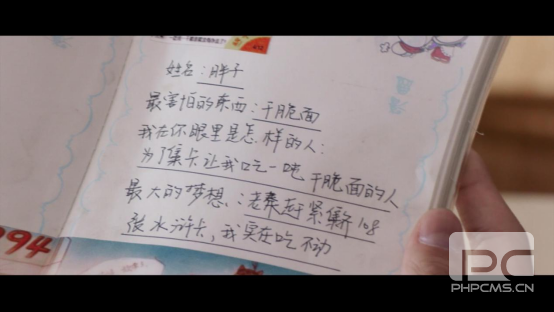 姓名：胖子
最害怕的东西：干脆面
我在你眼里是怎样的人：
为了集卡让我吃一吨干脆面的人
最大的梦想：老秦赶紧集齐108
张水浒卡，我实在吃不动
994
PC
PHPCMS.CN